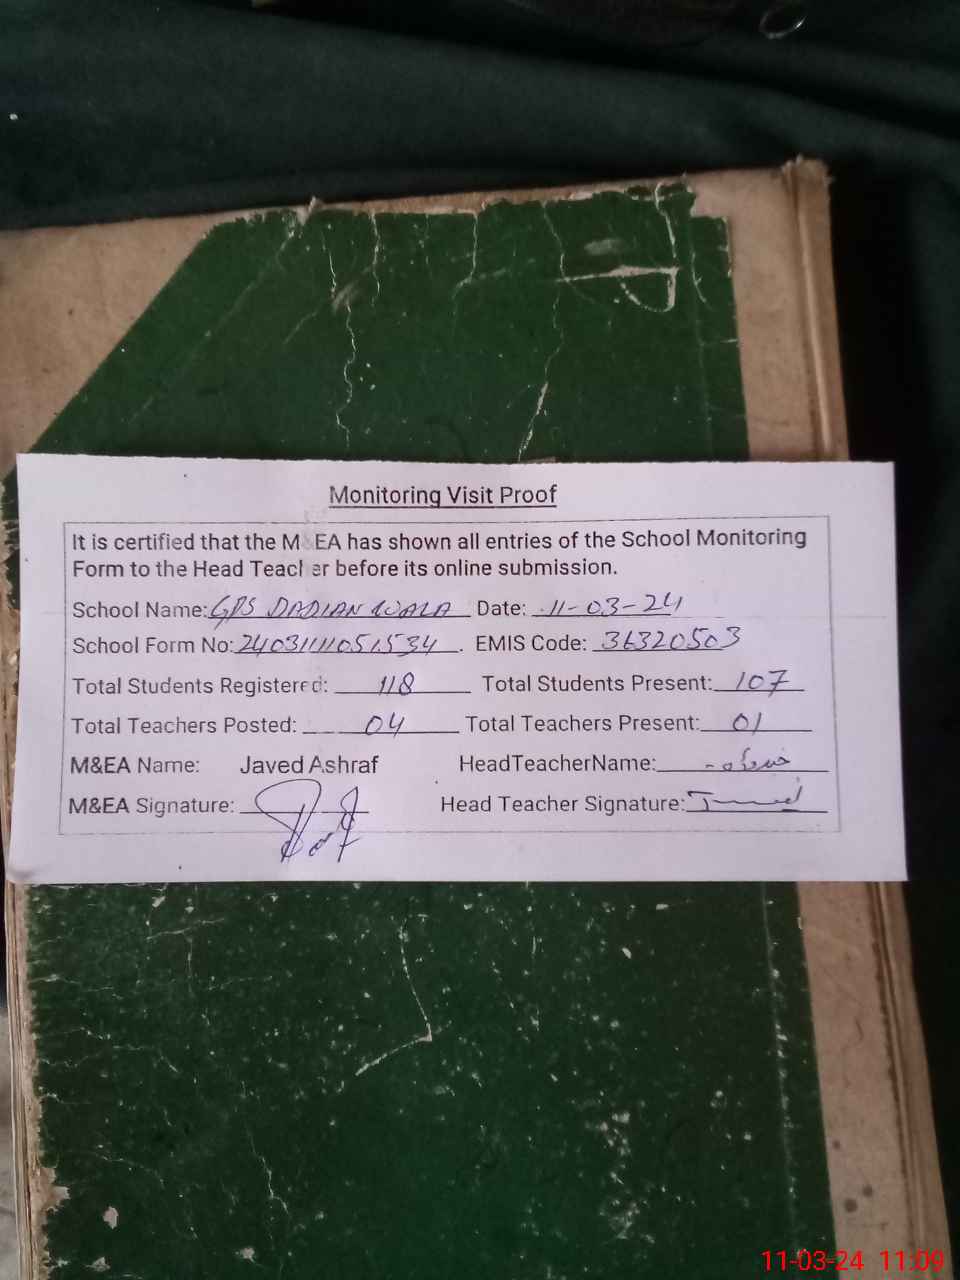 Monitoring Visit Proof
It is certified that the M&EA has shown all entries of the School Monitoring
Form to the Head Teacher before its online submission.
School Name: GPS DADIAN WALA Date: 11-03-24
School Form No: 24031111051534. EMIS Code: 36320503
Total Students Registered: 118 Total Students Present: 107
Total Teachers Posted: 04 Total Teachers Present: 01
M&EA Name: Javed Ashraf HeadTeacherName:
M&EA Signature: Head Teacher Signature:
11-03-24 11:09